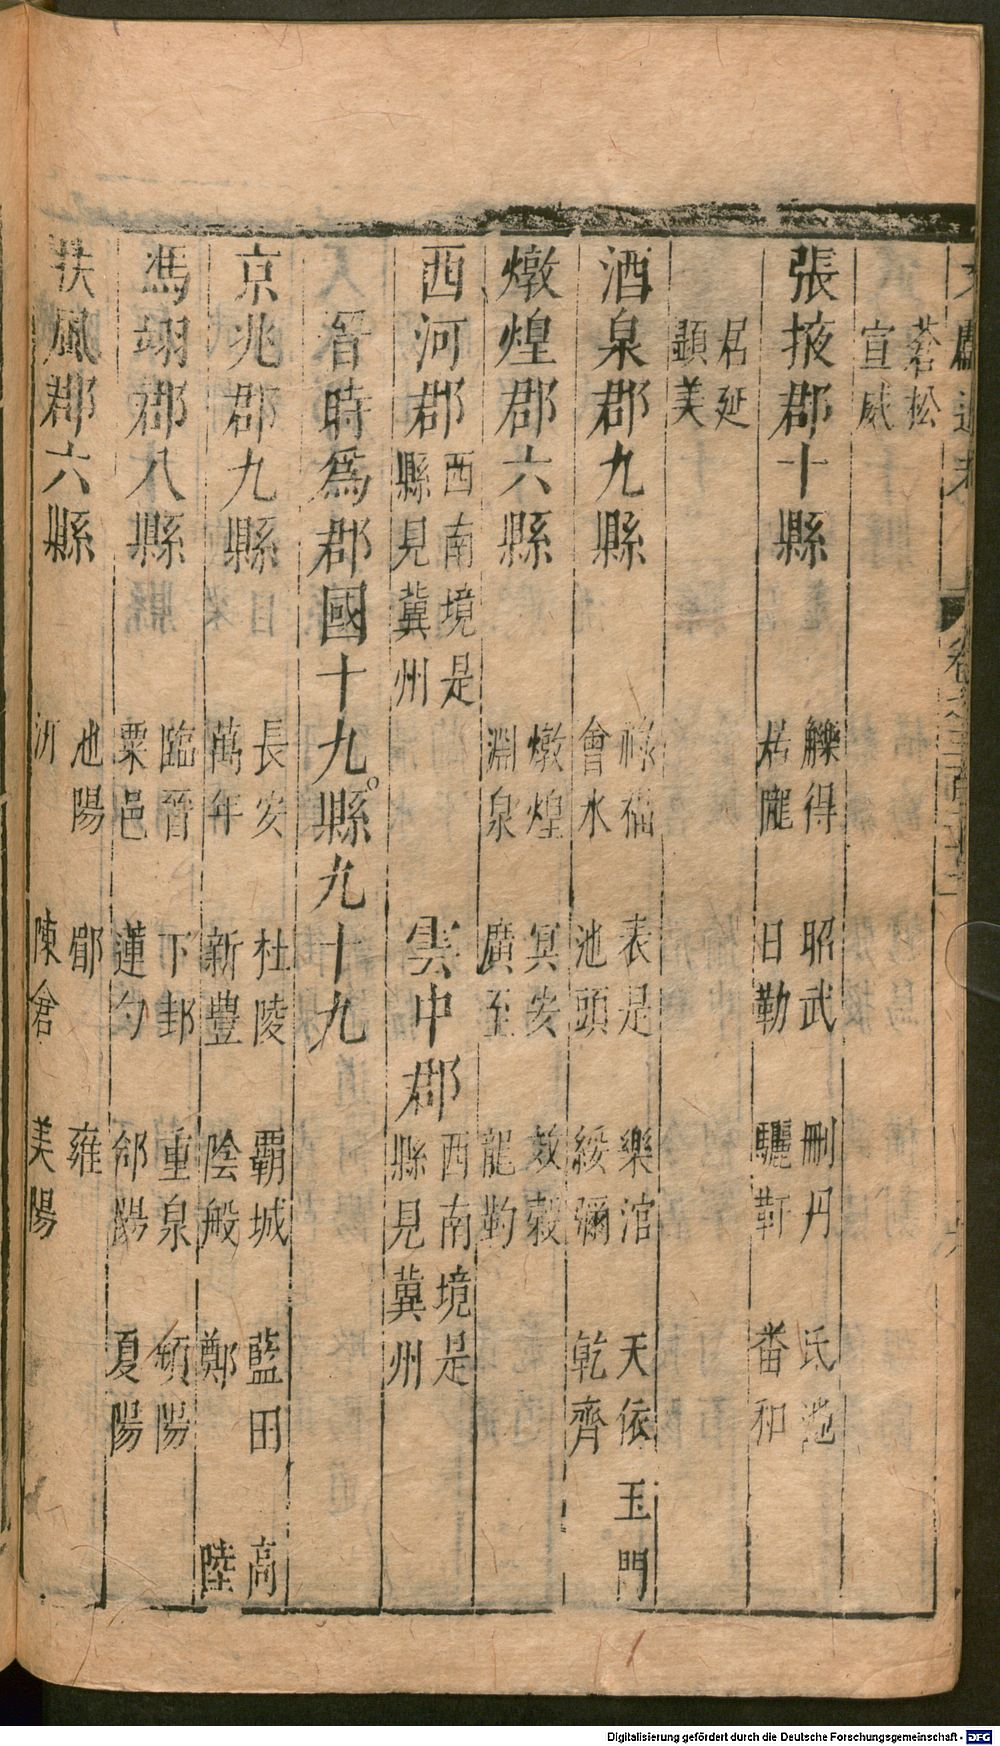 蒼松
宣威
張掖郡十縣
觻得 昭武 刪丹 氐池
居延
顯美
屋蘭 日勒 驪靬 番和
酒泉郡九縣
祿福 表是 樂涫 天依 玉門
會水 池頭 綏彌 乾齊
燉煌郡六縣
燉煌 冥安 效穀
淵泉 廣至 龍勒
西河郡
西南境是
縣見冀州
雲中郡
西南境是
縣見冀州
晉時爲郡國十九縣九十九
京兆郡九縣
長安 杜陵 覇城 藍田 高
萬年 新豐 陰般 鄭 陸
馮翊郡八縣
臨晉 下邽 重泉 頻陽
粟邑 蓮勺 郃陽 夏陽
扶風郡六縣
池陽 郿 雍
汧 陳倉 美陽
Digitalisierung gefördert durch die Deutsche Forschungsgemeinschaft - DFG